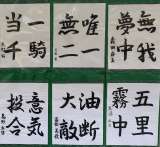 無我
夢中
唯一
無二
一騎
当千
五里
霧中
油断
大敵
意気
投合